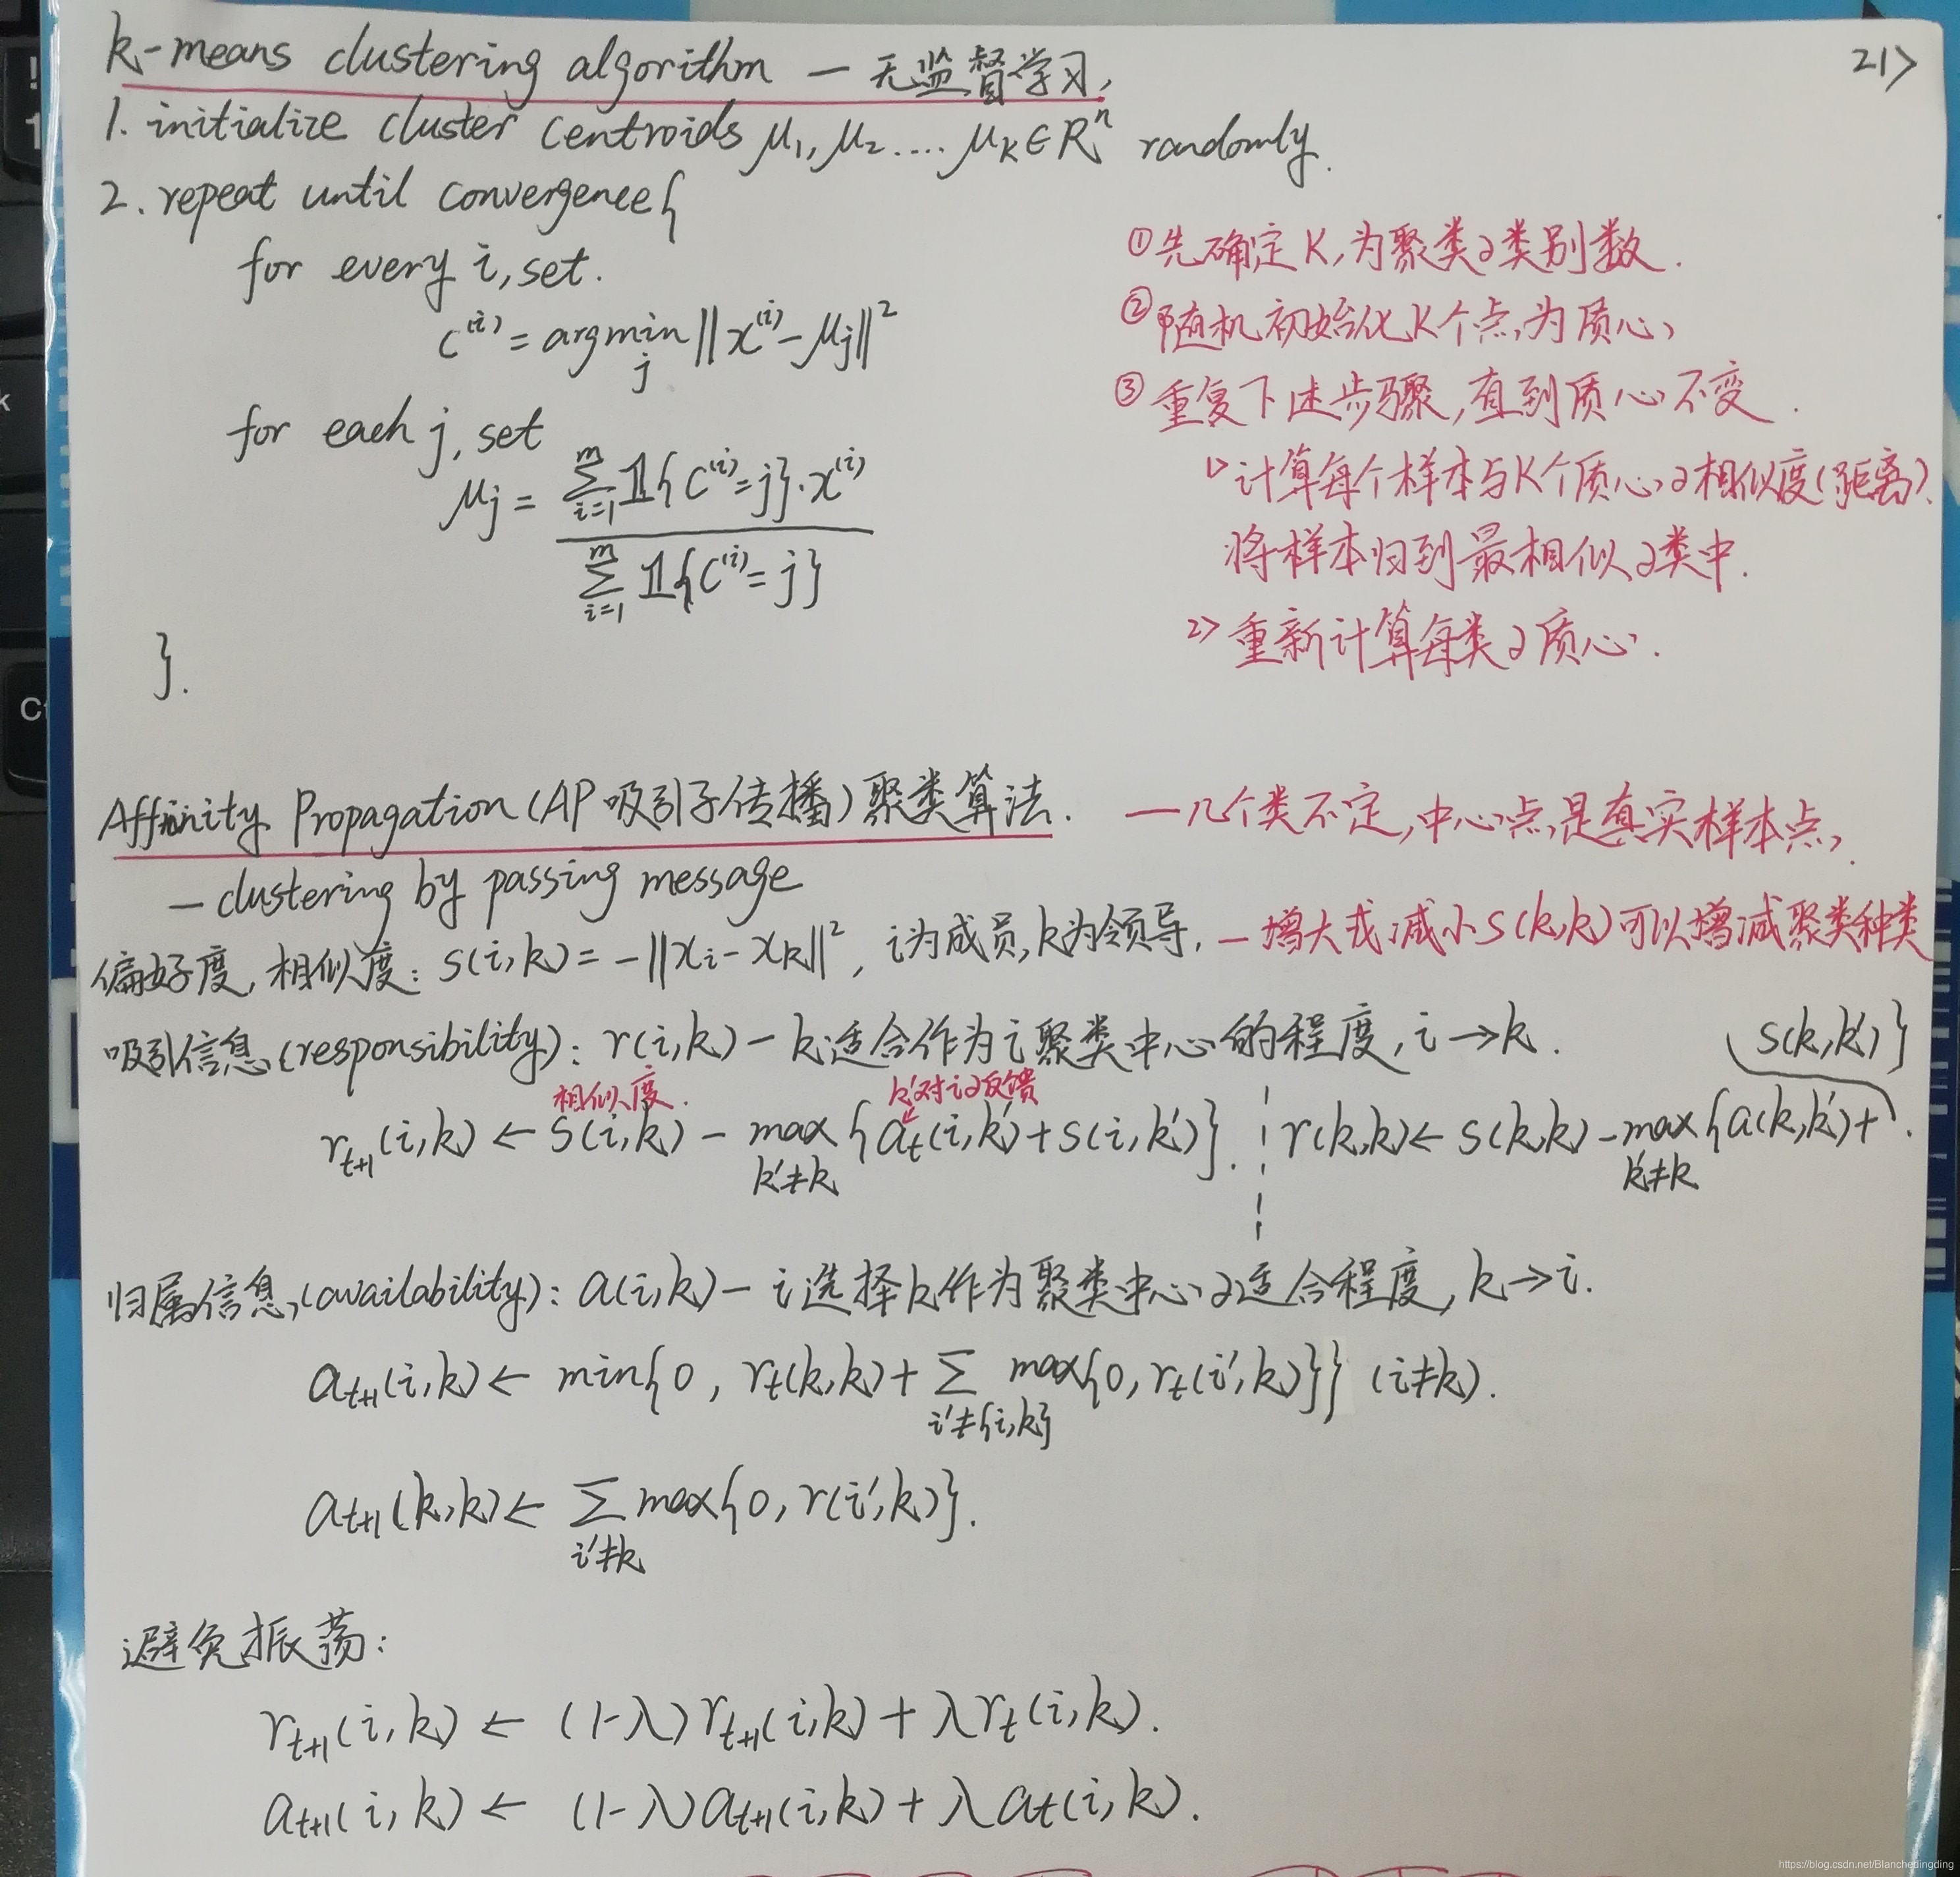 21>
k-means clustering algorithm — 无监督学习,
1. initialize cluster centroids μ₁, μ₂.... μₖ∈Rⁿ randomly.
2. repeat until convergence{
for every i, set.
c⁽ⁱ⁾ = argmin ‖x⁽ⁱ⁾ - μj‖²
j
for each j, set
μj = ∑ 1{c⁽ⁱ⁾=j}·x⁽ⁱ⁾
m
i=1
∑ 1{c⁽ⁱ⁾=j}
m
i=1
}.
①先确定K,为聚类の类别数.
②随机初始化K个点,为质心,
③重复下述步骤,直到质心不变.
1>计算每个样本与K个质心の相似度(距离).
将样本归到最相似の类中.
2>重新计算每类の质心.
Affinity Propagation (AP吸引子传播)聚类算法. —几个类不定,中心点是真实样本点,
— clustering by passing message
偏好度,相似度: s(i,k) = -‖xi - xk‖², i为成员,k为领导, —增大或减小s(k,k)可以增减聚类种类
吸引信息(responsibility): r(i,k) - k适合作为i聚类中心的程度, i→k.
相似度.
k'对iの反馈
rt+1(i,k) ← s(i,k) - max {at(i,k')+s(i,k')}.
k'≠k
r(k,k)← s(k,k) - max {a(k,k')+ s(k,k')}
k'≠k
归属信息(availability): a(i,k) - i选择k作为聚类中心の适合程度, k→i.
at+1(i,k) ← min{0, rt(k,k)+ ∑ max{0, rt(i',k)}} (i≠k).
i'≠{i,k}
at+1(k,k) ← ∑ max{0, r(i',k)}.
i'≠k
避免振荡:
rt+1(i,k) ← (1-λ)rt+1(i,k) + λrt(i,k).
at+1(i,k) ← (1-λ)at+1(i,k) + λat(i,k).
https://blog.csdn.net/Blanchedingding